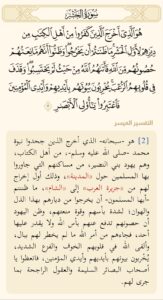 سُورَةُ الحَشۡرِ
هُوَ ٱلَّذِيٓ أَخۡرَجَ ٱلَّذِينَ كَفَرُواْ مِنۡ أَهۡلِ ٱلۡكِتَٰبِ مِن
دِيَٰرِهِمۡ لِأَوَّلِ ٱلۡحَشۡرِۚ مَا ظَنَنتُمۡ أَن يَخۡرُجُواْۖ وَظَنُّوٓاْ أَنَّهُم مَّانِعَتُهُمۡ
حُصُونُهُم مِّنَ ٱللَّهِ فَأَتَىٰهُمُ ٱللَّهُ مِنۡ حَيۡثُ لَمۡ يَحۡتَسِبُواْۖ وَقَذَفَ
فِي قُلُوبِهِمُ ٱلرُّعۡبَۚ يُخۡرِبُونَ بُيُوتَهُم بِأَيۡدِيهِمۡ وَأَيۡدِي ٱلۡمُؤۡمِنِينَ
فَٱعۡتَبِرُواْ يَٰٓأُوْلِي ٱلۡأَبۡصَٰرِ
التفسير الميسر
[2] هو -سبحانه- الذي أخرج الذين جحدوا نبوة
محمد صلى الله عليه وسلم، من أهل الكتاب،
وهم يهود بني النضير، من مساكنهم التي جاوروا
بها المسلمين حول «المدينة»، وذلك أول إخراج
لهم من «جزيرة العرب» إلى «الشام»، ما ظننتم
-أيها المسلمون- أن يخرجوا من ديارهم بهذا الذل
والهوان؛ لشدة بأسهم وقوة منعتهم، وظن اليهود
أن حصونهم تدفع عنهم بأس الله ولا يقدر عليها
أحد، فأتاهم من أمر الله ما لم يخطر لهم ببال،
وألقى الله في قلوبهم الخوف والفزع الشديد،
يُخْربون بيوتهم بأيديهم وأيدي المؤمنين، فاتعظوا يا
أصحاب البصائر السليمة والعقول الراجحة بما
جرى لهم.